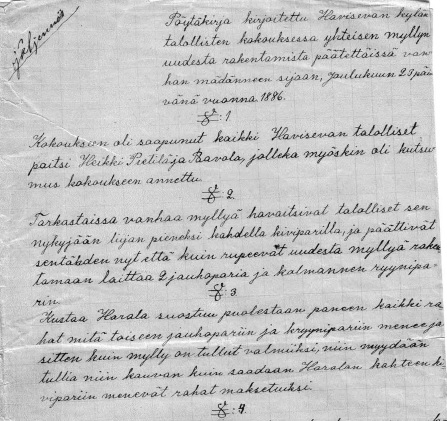 Jäljennös
Pöytäkirja kirjoitettu Havisevan kylän
talollisten kokouksessa yhteisen myllyn
uudesta rakentamista päätettäissä van-
han mädänneen sijaan, Joulukuun 23 päi-
vänä vuonna 1886.
§: 1
Kokouksien oli saapunut kaikki Havisevan talolliset
paitsi Heikki Pietilä ja Bavola, jolleka myöskin oli kutsu-
mus kokoukseen annettu.
§ 2.
Tarkastaissa vanhaa myllyä havaitsivat talolliset sen
nykyjään liijan pieneksi kahdella kiviparilla, ja päättivät
sentähden nyt että kuin rupeevat uudesta myllyä raken-
tamaan laittaa 2 jauhoparia ja kolmannen ryynipa-
rin.
§: 3
Kustaa Harala suostuu puolestaan paneen kaikki ra-
hat mitä toiseen jauhopariin ja kryynipariin menee ja
sitten kuin mylly on tullut valmiiksi, niin myydään
tullia niin kauvan kuin saadaan Haralan kahteen ki-
vipariin menevät rahat maksetuiksi.
§: 4.